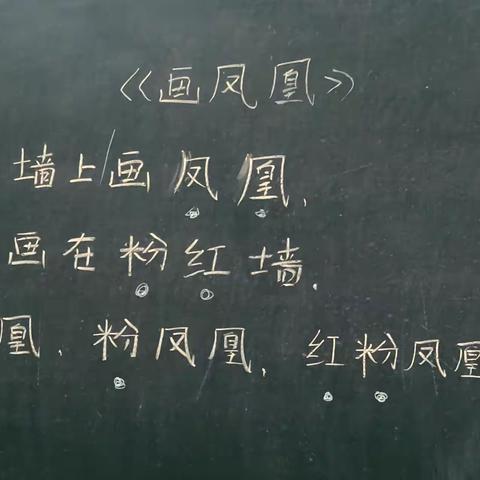 《画凤凰》
墙上画凤凰,
画在粉红墙.
凰、粉凤凰,红粉凤凰